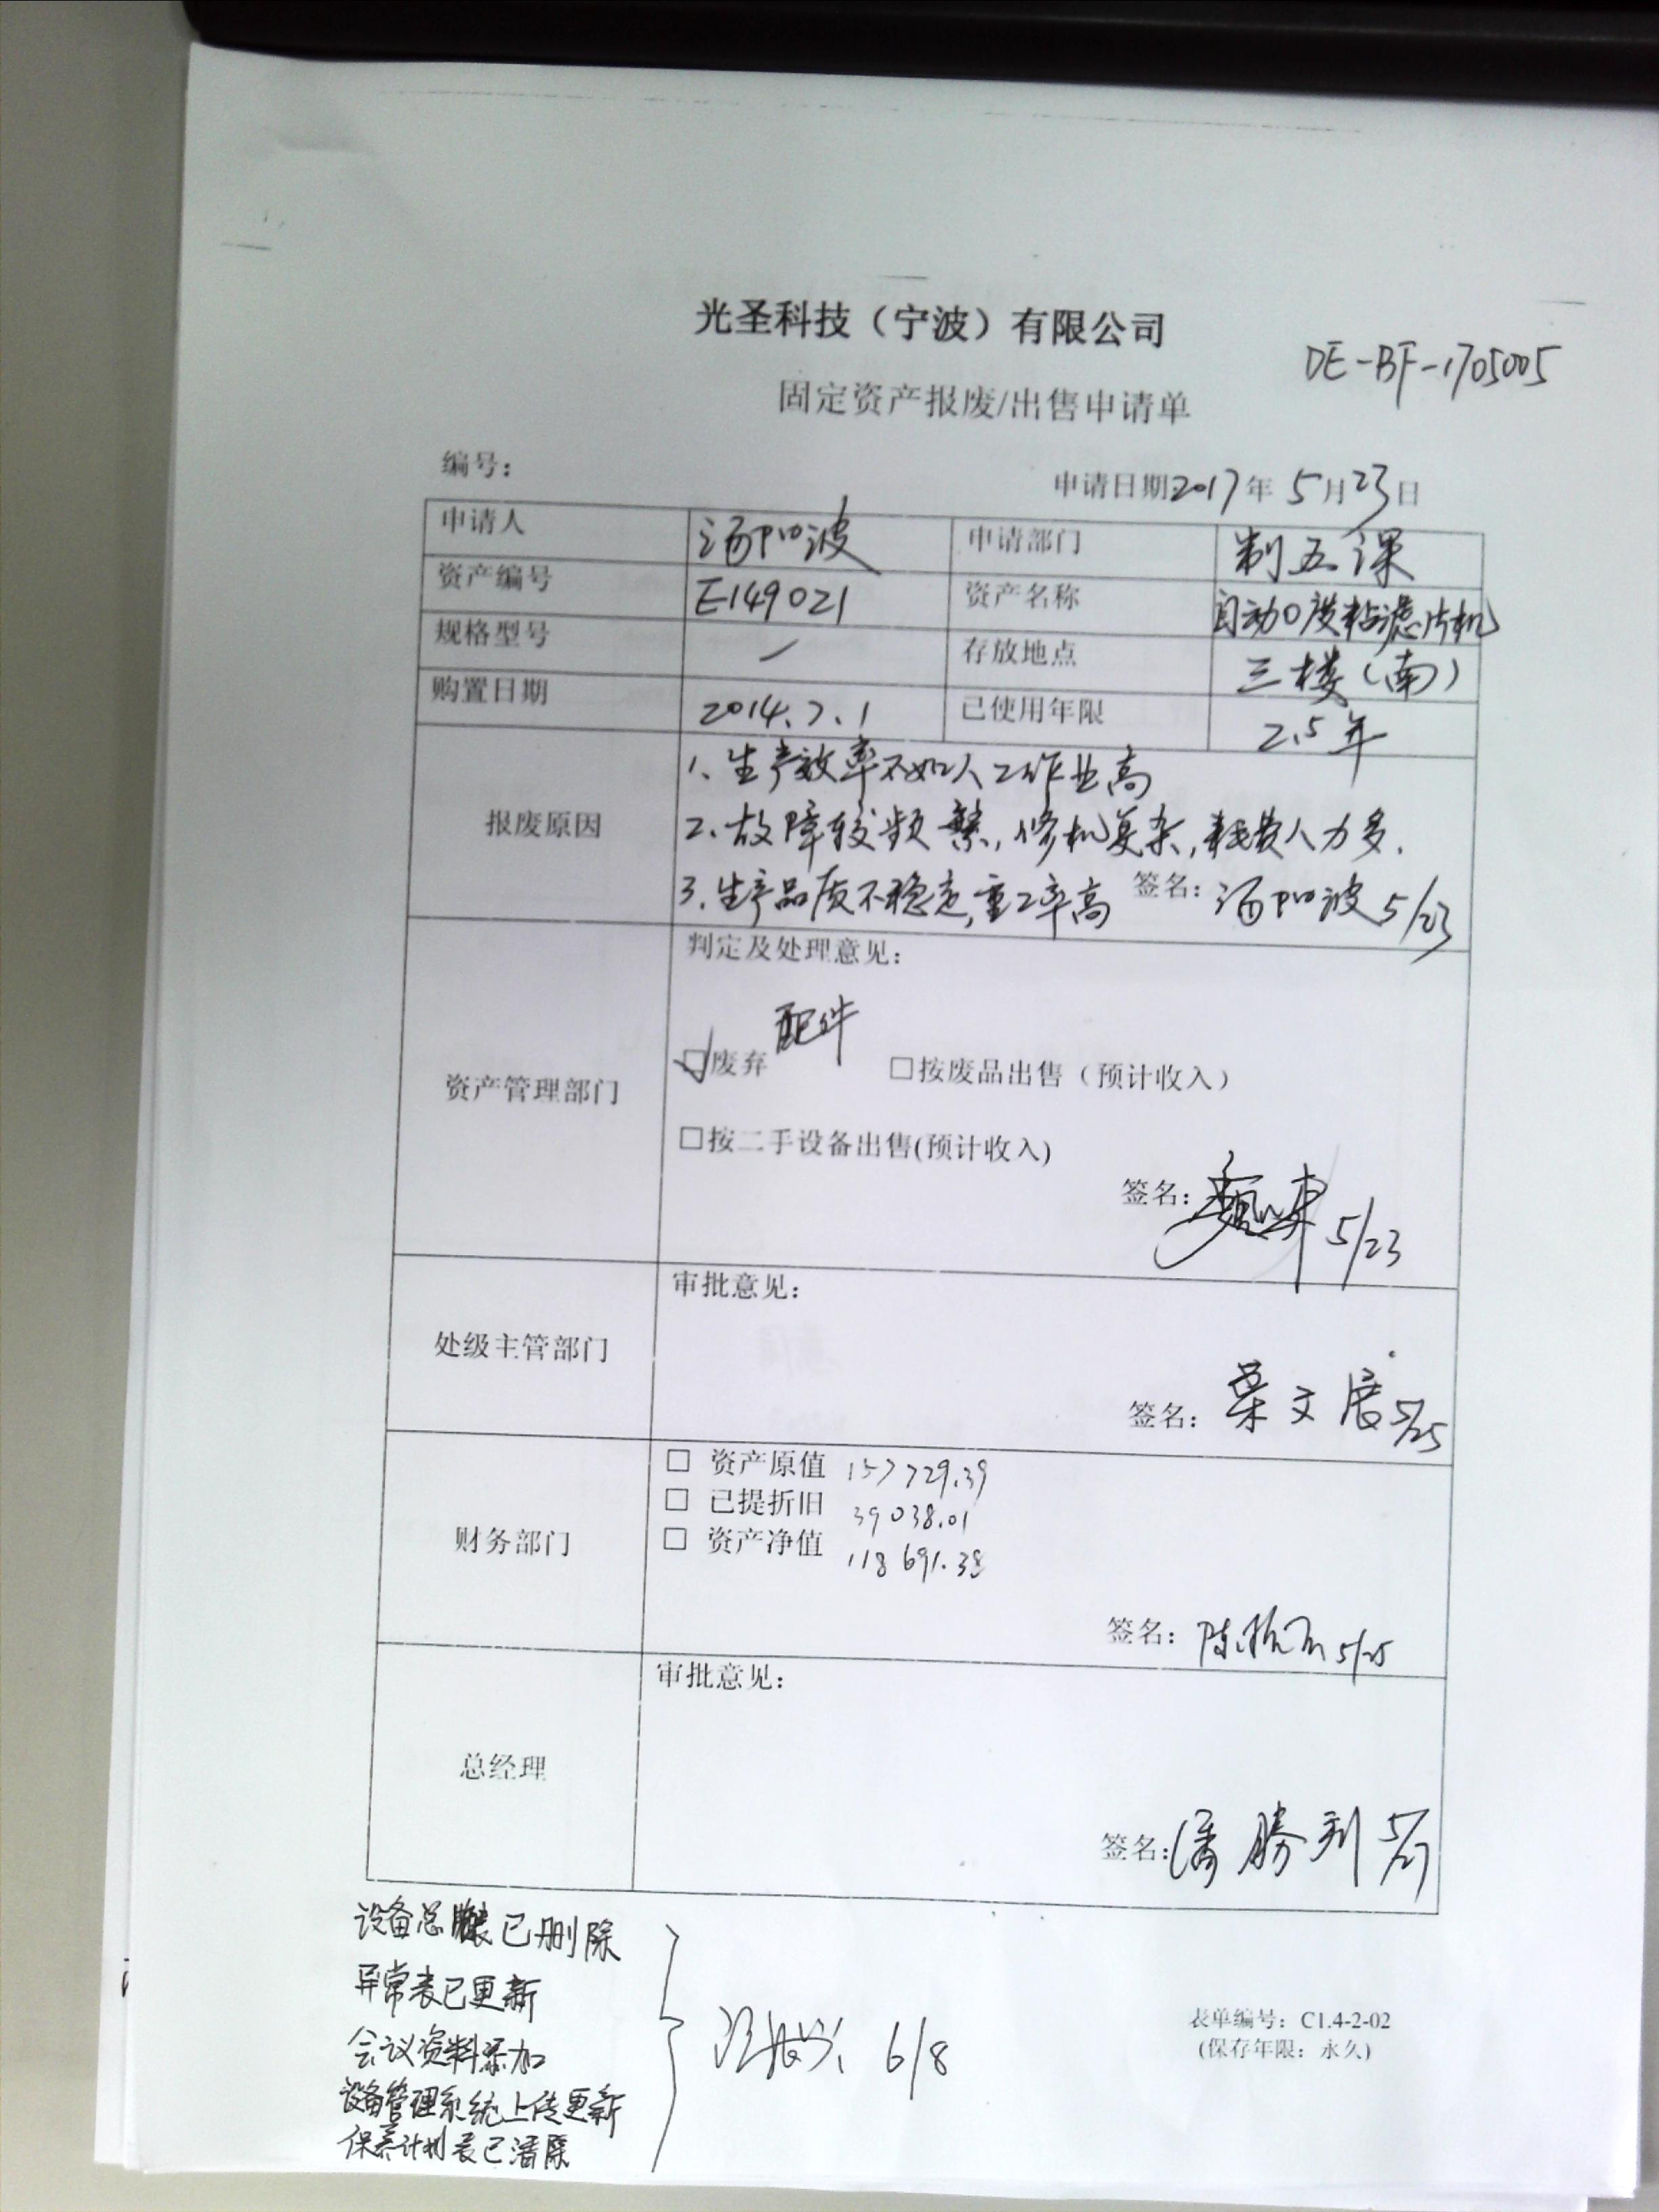 光圣科技（宁波）有限公司
DE-BF-1705005
固定资产报废/出售申请单
编号：
申请日期2017年 5月23日
申请人 汤 波 申请部门 制五课
资产编号 E149021 资产名称 自动0度粘滤片机
规格型号 / 存放地点 三楼（南）
购置日期 2014.7.1 已使用年限 2.5年
报废原因
1、生产效率不如人工作业高
2、故障较频繁，修机复杂，耗费人力多.
3、生产品质不稳定，重工率高 签名：汤 波 5/23
资产管理部门
判定及处理意见：
配件
☑废弃 □按废品出售（预计收入）
□按二手设备出售(预计收入)
签名： 5/23
处级主管部门
审批意见：
签名： 文展 5/25
财务部门
□ 资产原值 157729.39
□ 已提折旧 39038.01
□ 资产净值 118691.38
签名：陈 5/25
总经理
审批意见：
签名：潘勝利 5/27
设备总 表已删除
异常表已更新
会议资料添加
设备管理系统上传更新
保养计划表已清除
6/8
表单编号：C1.4-2-02
(保存年限：永久)